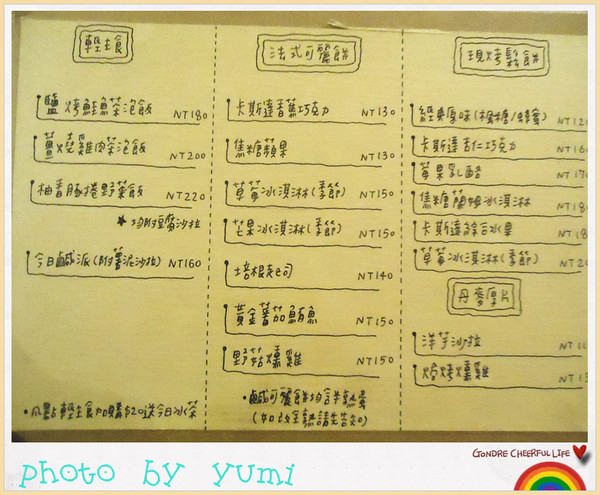 輕主食
鹽烤鮭魚茶泡飯 NT180
薑燒雞肉茶泡飯 NT200
柚香豚捲野菜飯 NT220
★均附豆腐沙拉
今日鹹派(附薯泥沙拉) NT160
輕主食加購$20送今日冰茶
法式可麗餅
卡斯達香蕉巧克力 NT130
焦糖蘋果 NT130
草莓冰淇淋(季節) NT150
芒果冰淇淋(季節) NT150
培根起司 NT140
黃金蕃茄鮪魚 NT150
野菇燻雞 NT150
•鹹可麗餅均含半熟蛋
(如改全熟請先告知)
現烤鬆餅
經典原味(楓糖/蜂蜜) NT12
卡斯達杏仁巧克力 NT16
莓果乳酪 NT17
焦糖蘭姆冰淇淋 NT18
卡斯達綜合水果 NT18
草莓冰淇淋(季節) NT20
丹麥厚片
洋芋沙拉 NT11
焗烤燻雞 NT1
photo by yumi
GONDRE CHEERFUL LIFE